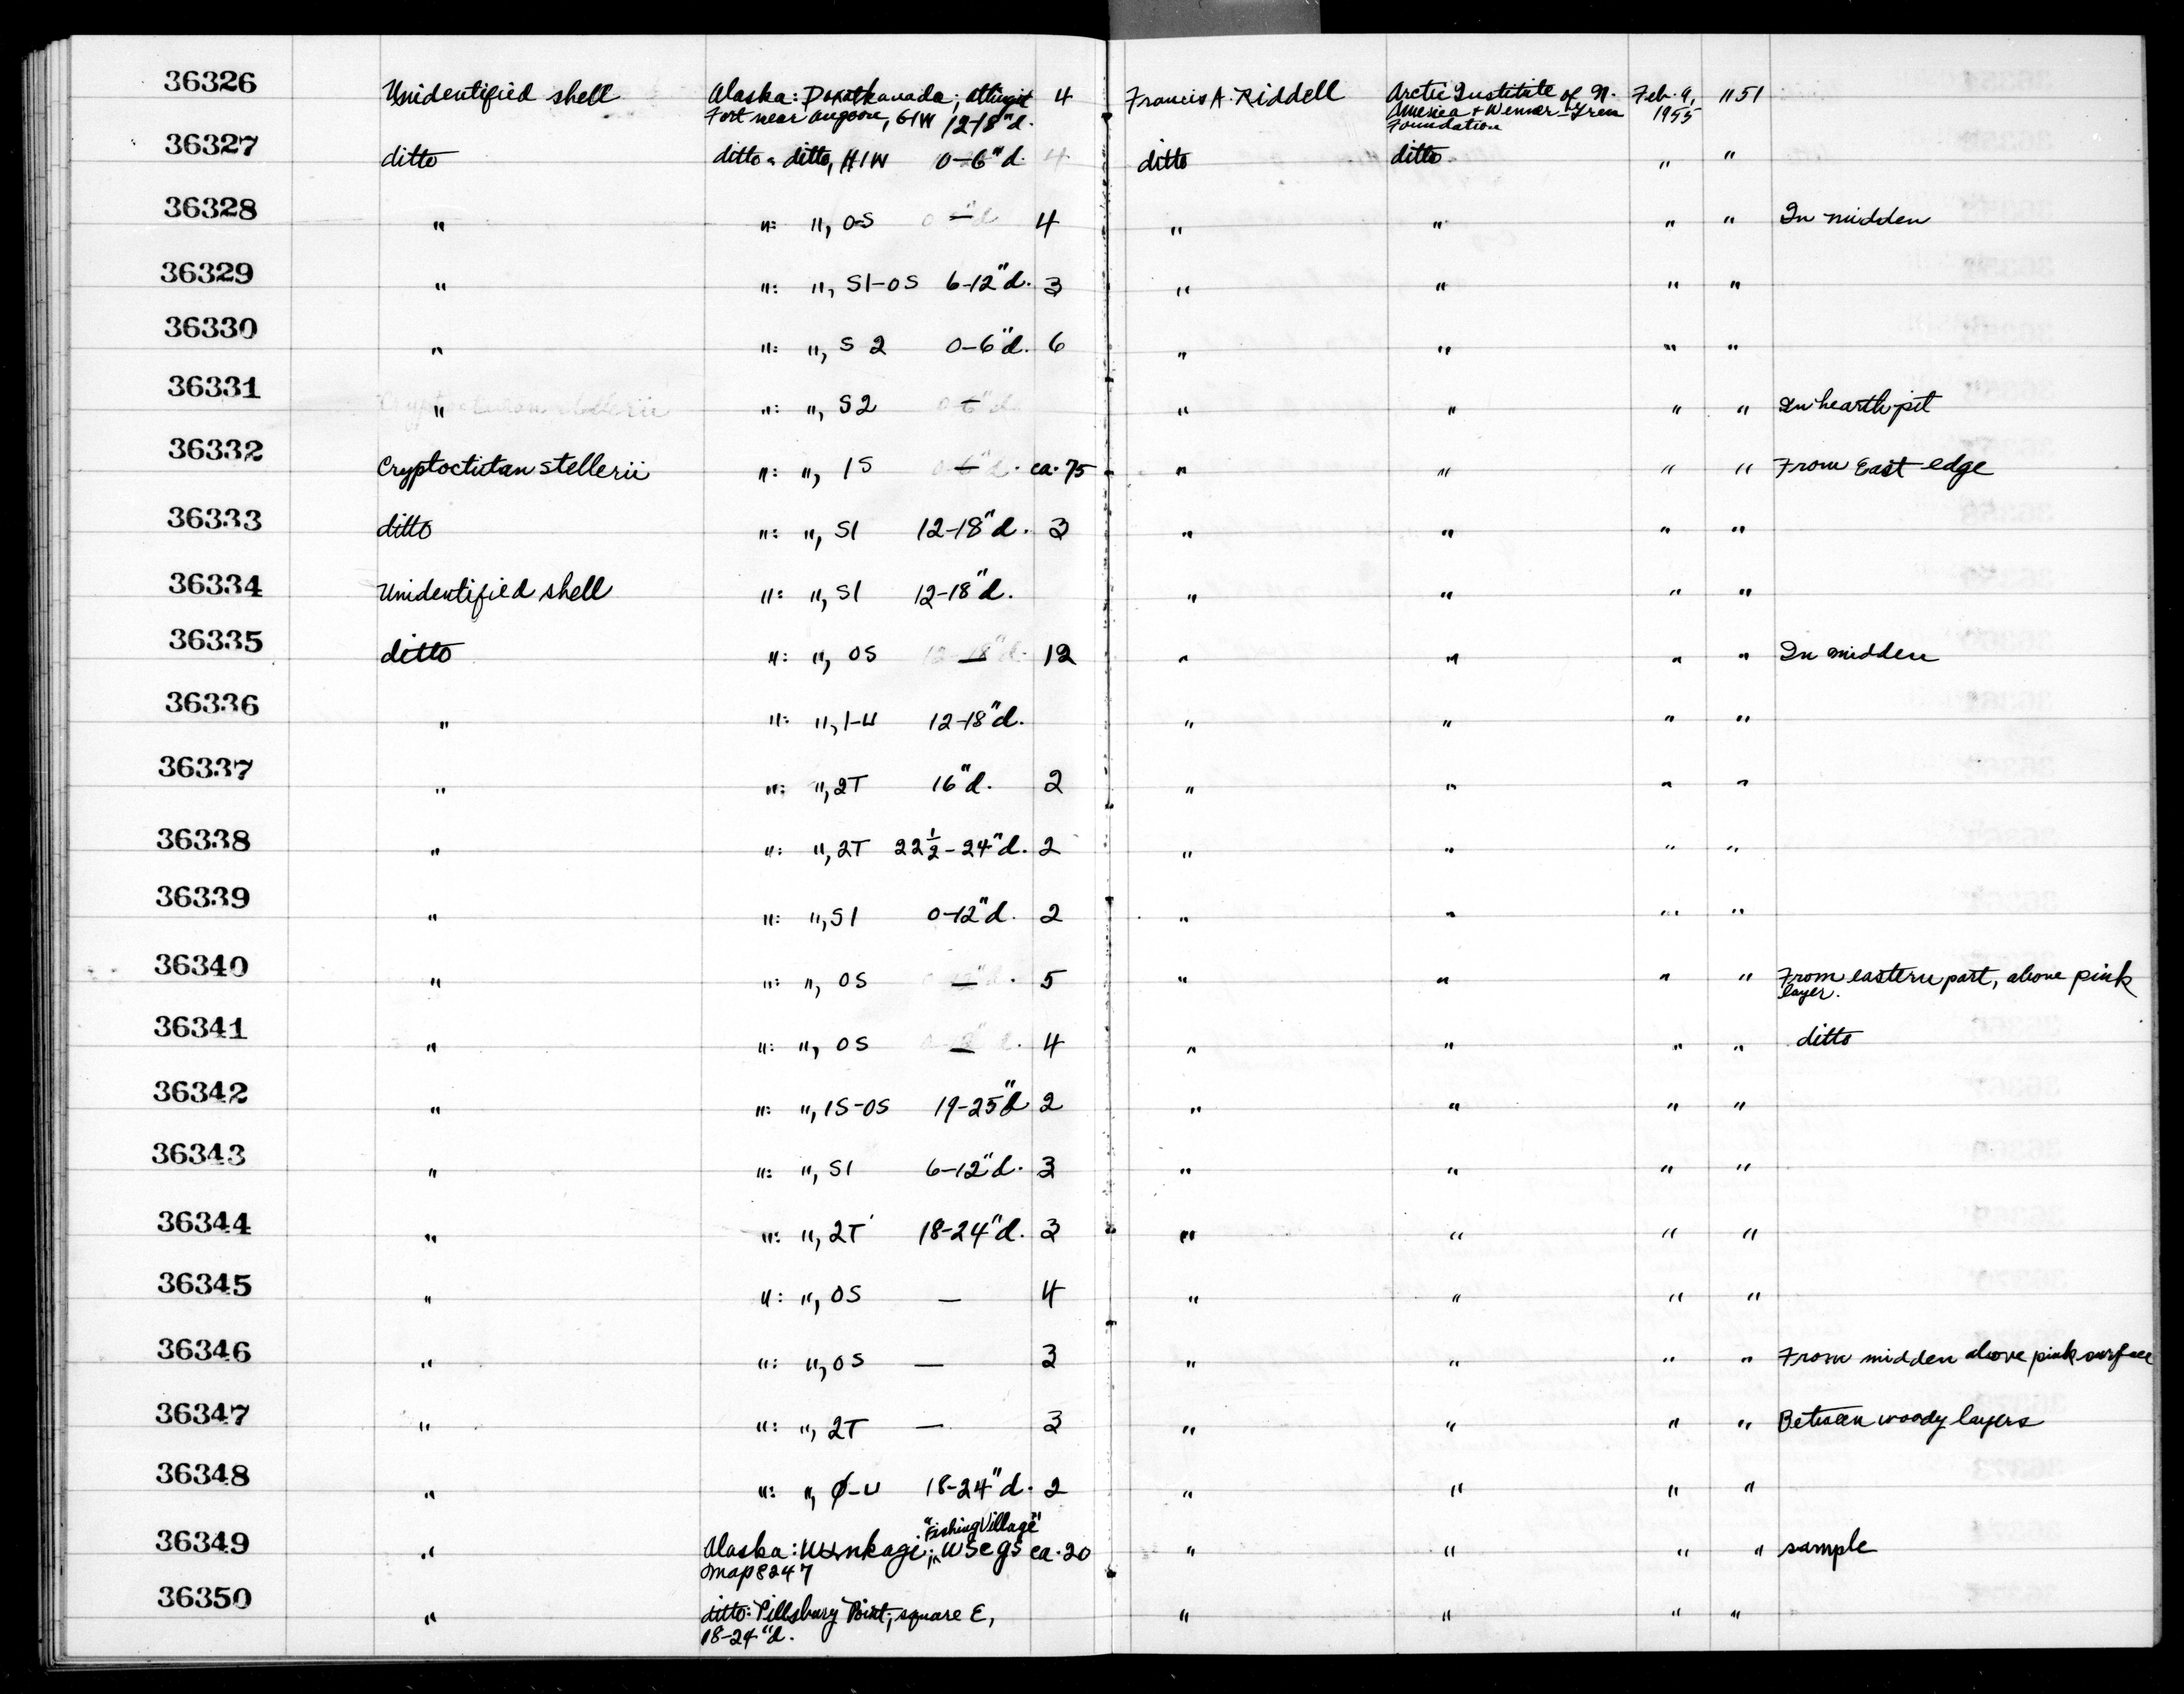 36326 Unidentified shell Alaska: Daxatkanada; Tlingit 4 Francis A. Riddell Arctic Institute of N. Feb. 9, 1151
Fort near Angoon, G1W 12-18"d. America + Wenner-Gren 1955
Foundation
36327 ditto ditto: ditto, H1W 0-6"d. 4 ditto ditto " "
36328 " ": ", OS — 4 " " " " In midden
36329 " ": ", S1-OS 6-12"d. 3 " " " "
36330 " ": ", S2 0-6"d. 6 " " " "
36331 " ": ", S2 — " " " " In hearth pit
36332 Cryptochiton stellerii ": ", 1S — ca. 75 " " " " From East edge
36333 ditto ": ", S1 12-18"d. 3 " " " "
36334 Unidentified shell ": ", S1 12-18"d. " " " "
36335 ditto ": ", OS — 12 " " " " In midden
36336 " ": ", 1-U 12-18"d. " " " "
36337 " ": ", 2T 16"d. 2 " " " "
36338 " ": ", 2T 22½-24"d. 2 " " " "
36339 " ": ", S1 0-12"d. 2 " " " "
36340 " ": ", OS — 5 " " " " From eastern part, above pink
layer.
36341 " ": ", OS — 4 " " " " ditto
36342 " ": ", 1S-OS 19-25"d 2 " " " "
36343 " ": ", S1 6-12"d. 3 " " " "
36344 " ": ", 2T 18-24"d. 3 " " " "
36345 " ": ", OS — 4 " " " "
36346 " ": ", OS — 3 " " " " From midden above pink surface
36347 " ": ", 2T — 3 " " " " Between woody layers
36348 " ": ", Ø-U 18-24"d. 2 " " " "
"Fishing Village"
36349 " Alaska: ca. 20 " " " " sample
map 8247
36350 " ditto: Pillsbury Point; square E, " " " "
18-24"d.